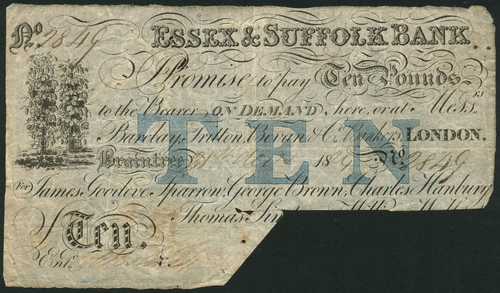 No. 2849 ESSEX & SUFFOLK BANK
I Promise to pay Ten Pounds
to the Bearer ON DEMAND, here, or at Mess.rs
Barclay, Tritton, Bevan & Co. Bankers LONDON.
TEN
Braintree 18 No. 2849
For James Goodeve Sparrow, George Brown, Charles Hanbury
Thomas
£ Ten.
Entd.